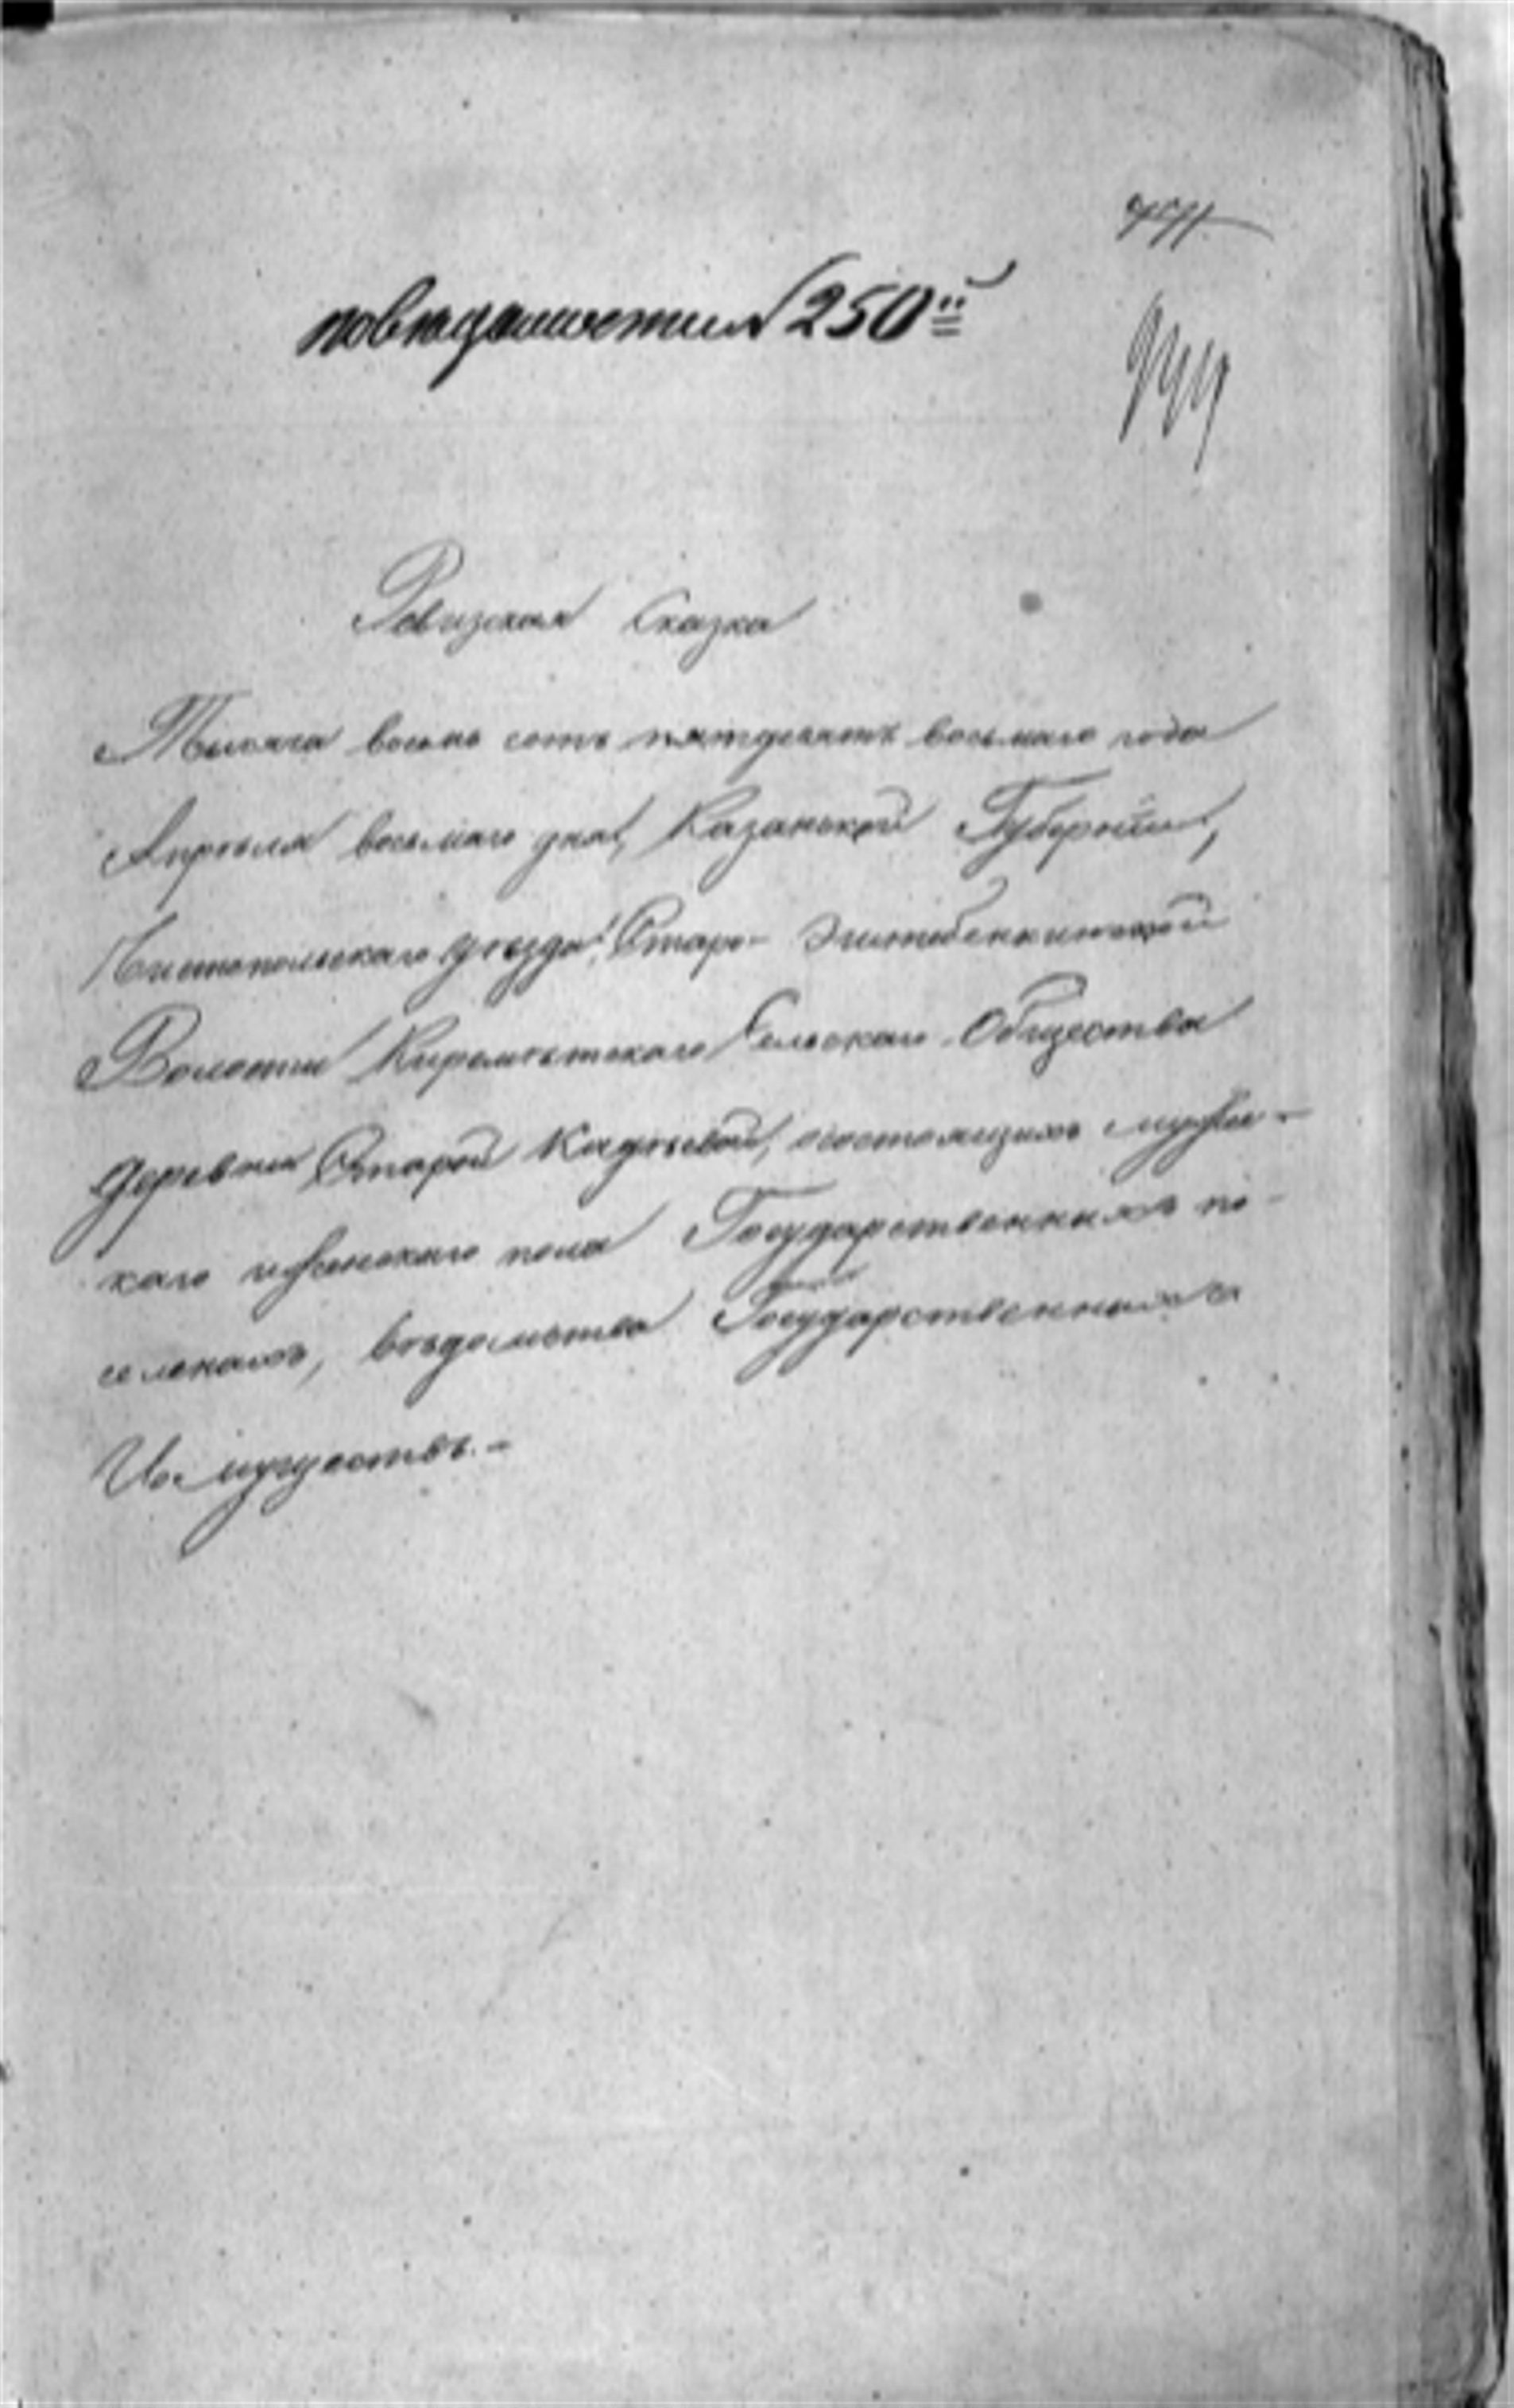 по вѣдомости 250й
Ревизская Сказка
Тысяча восемь сотъ пятдесятъ восьмаго года
Апрѣля восьмаго дня, Казанской Губерніи,
Чистопольскаго уѣзда, Старо-Эштебенькинской
Волости Киреметскаго Сельскаго Общества
Деревни Старой Кадѣевой, состоящихъ мужес-
каго и женскаго пола Государственныхъ по-
селенахъ, вѣдомства Государственныхъ
Имуществъ.-